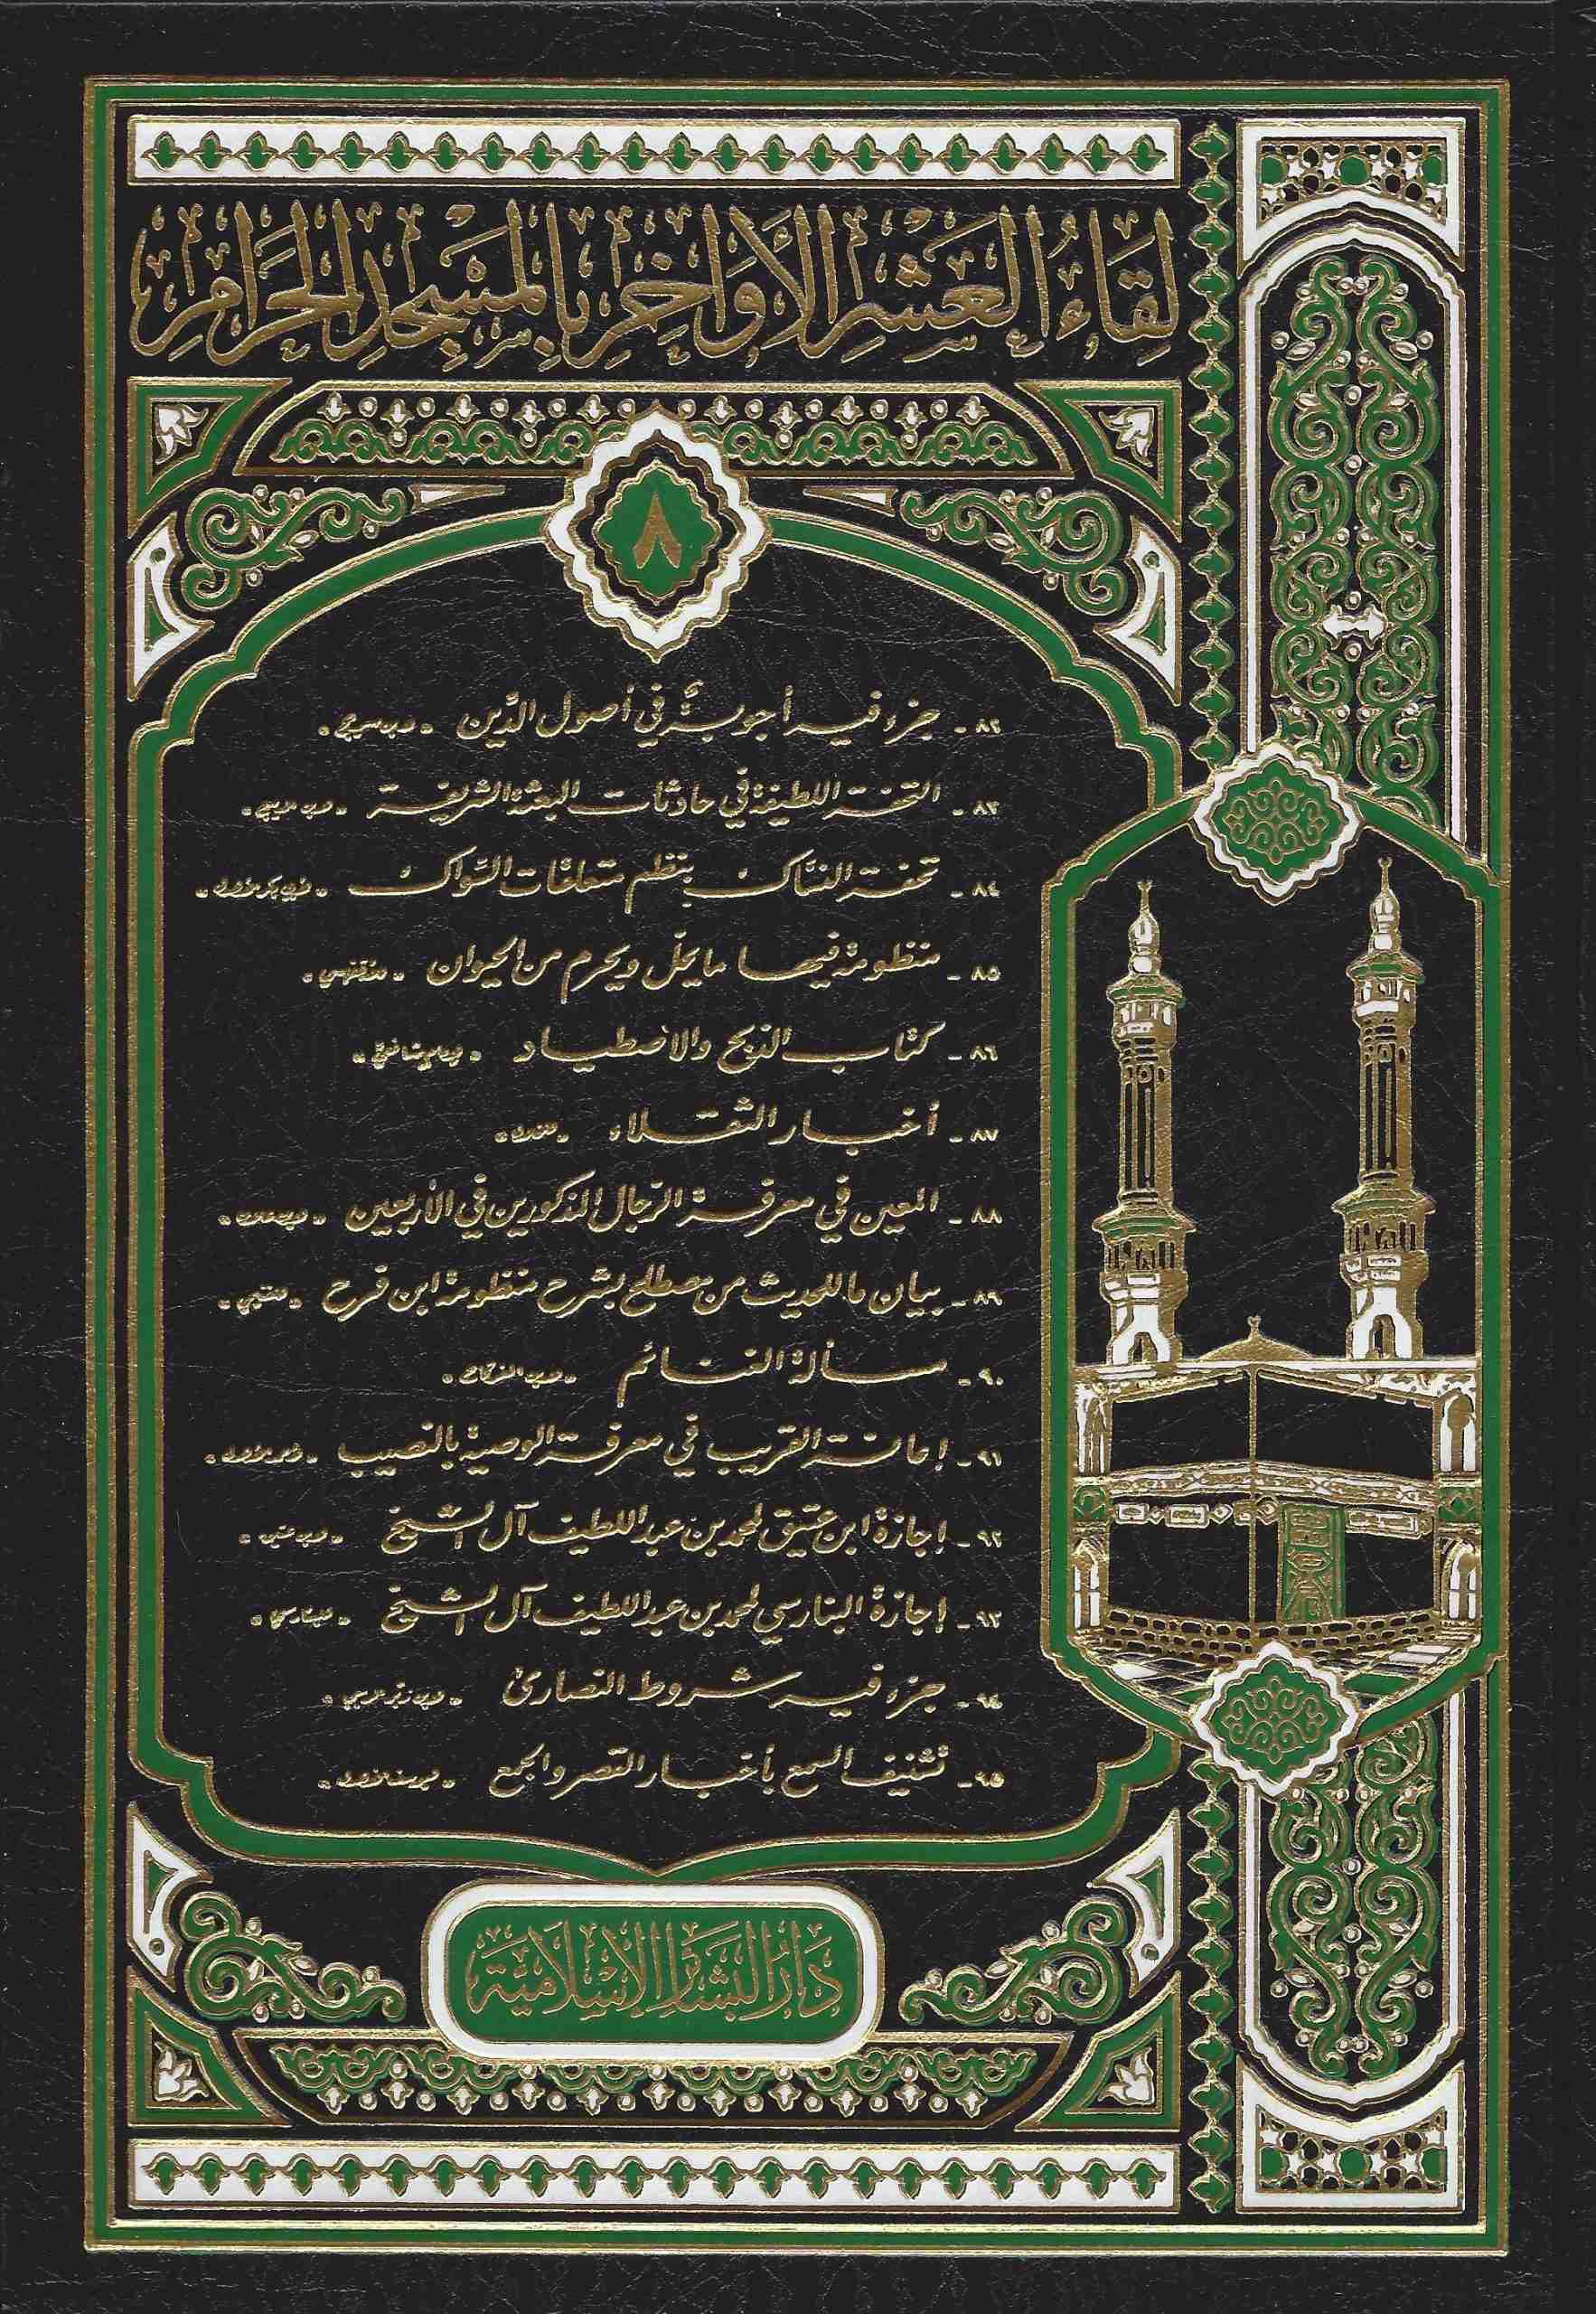 لِقَاءُ العَشْرِ الأَوَاخِرِ بِالمَسْجِدِ الحَرَامِ
٨
٨٢ - جزء فيه أجوبةٌ في أصول الدِّين - لابن سريج -
٨٣ - التحفة اللطيفة في حادثات البعثة الشريفة
٨٤ - تحفة النسَّاك بنظم متعلقات السِّواك
٨٥ - منظومة فيها ما يحلّ ويحرم من الحيوان - للأقفهسي -
٨٦ - كتاب الذبح والاصطياد
٨٧ - أخبار الثقلاء - للخلال -
٨٨ - المعين في معرفة الرّجال المذكورين في الأربعين
٨٩ - بيان ما للحديث من مصطلح بشرح منظومة ابن فرح
٩٠ - مسألة الغنائم - لابن الفركاح -
٩١ - إعانة القريب في معرفة الوصية بالنصيب
٩٢ - إجازة ابن عتيق لمحمد بن عبد اللطيف آل الشيخ - لابن عتيق -
٩٣ - إجازة البنارسي لمحمد بن عبد اللطيف آل الشيخ - للبنارسي -
٩٤ - جزء فيه شروط النصارى - لابن زبر الربعي -
٩٥ - تشنيف السمع بأخبار القصر والجمع
دَارُ البَشَائِرِ الإِسْلَامِيَّة